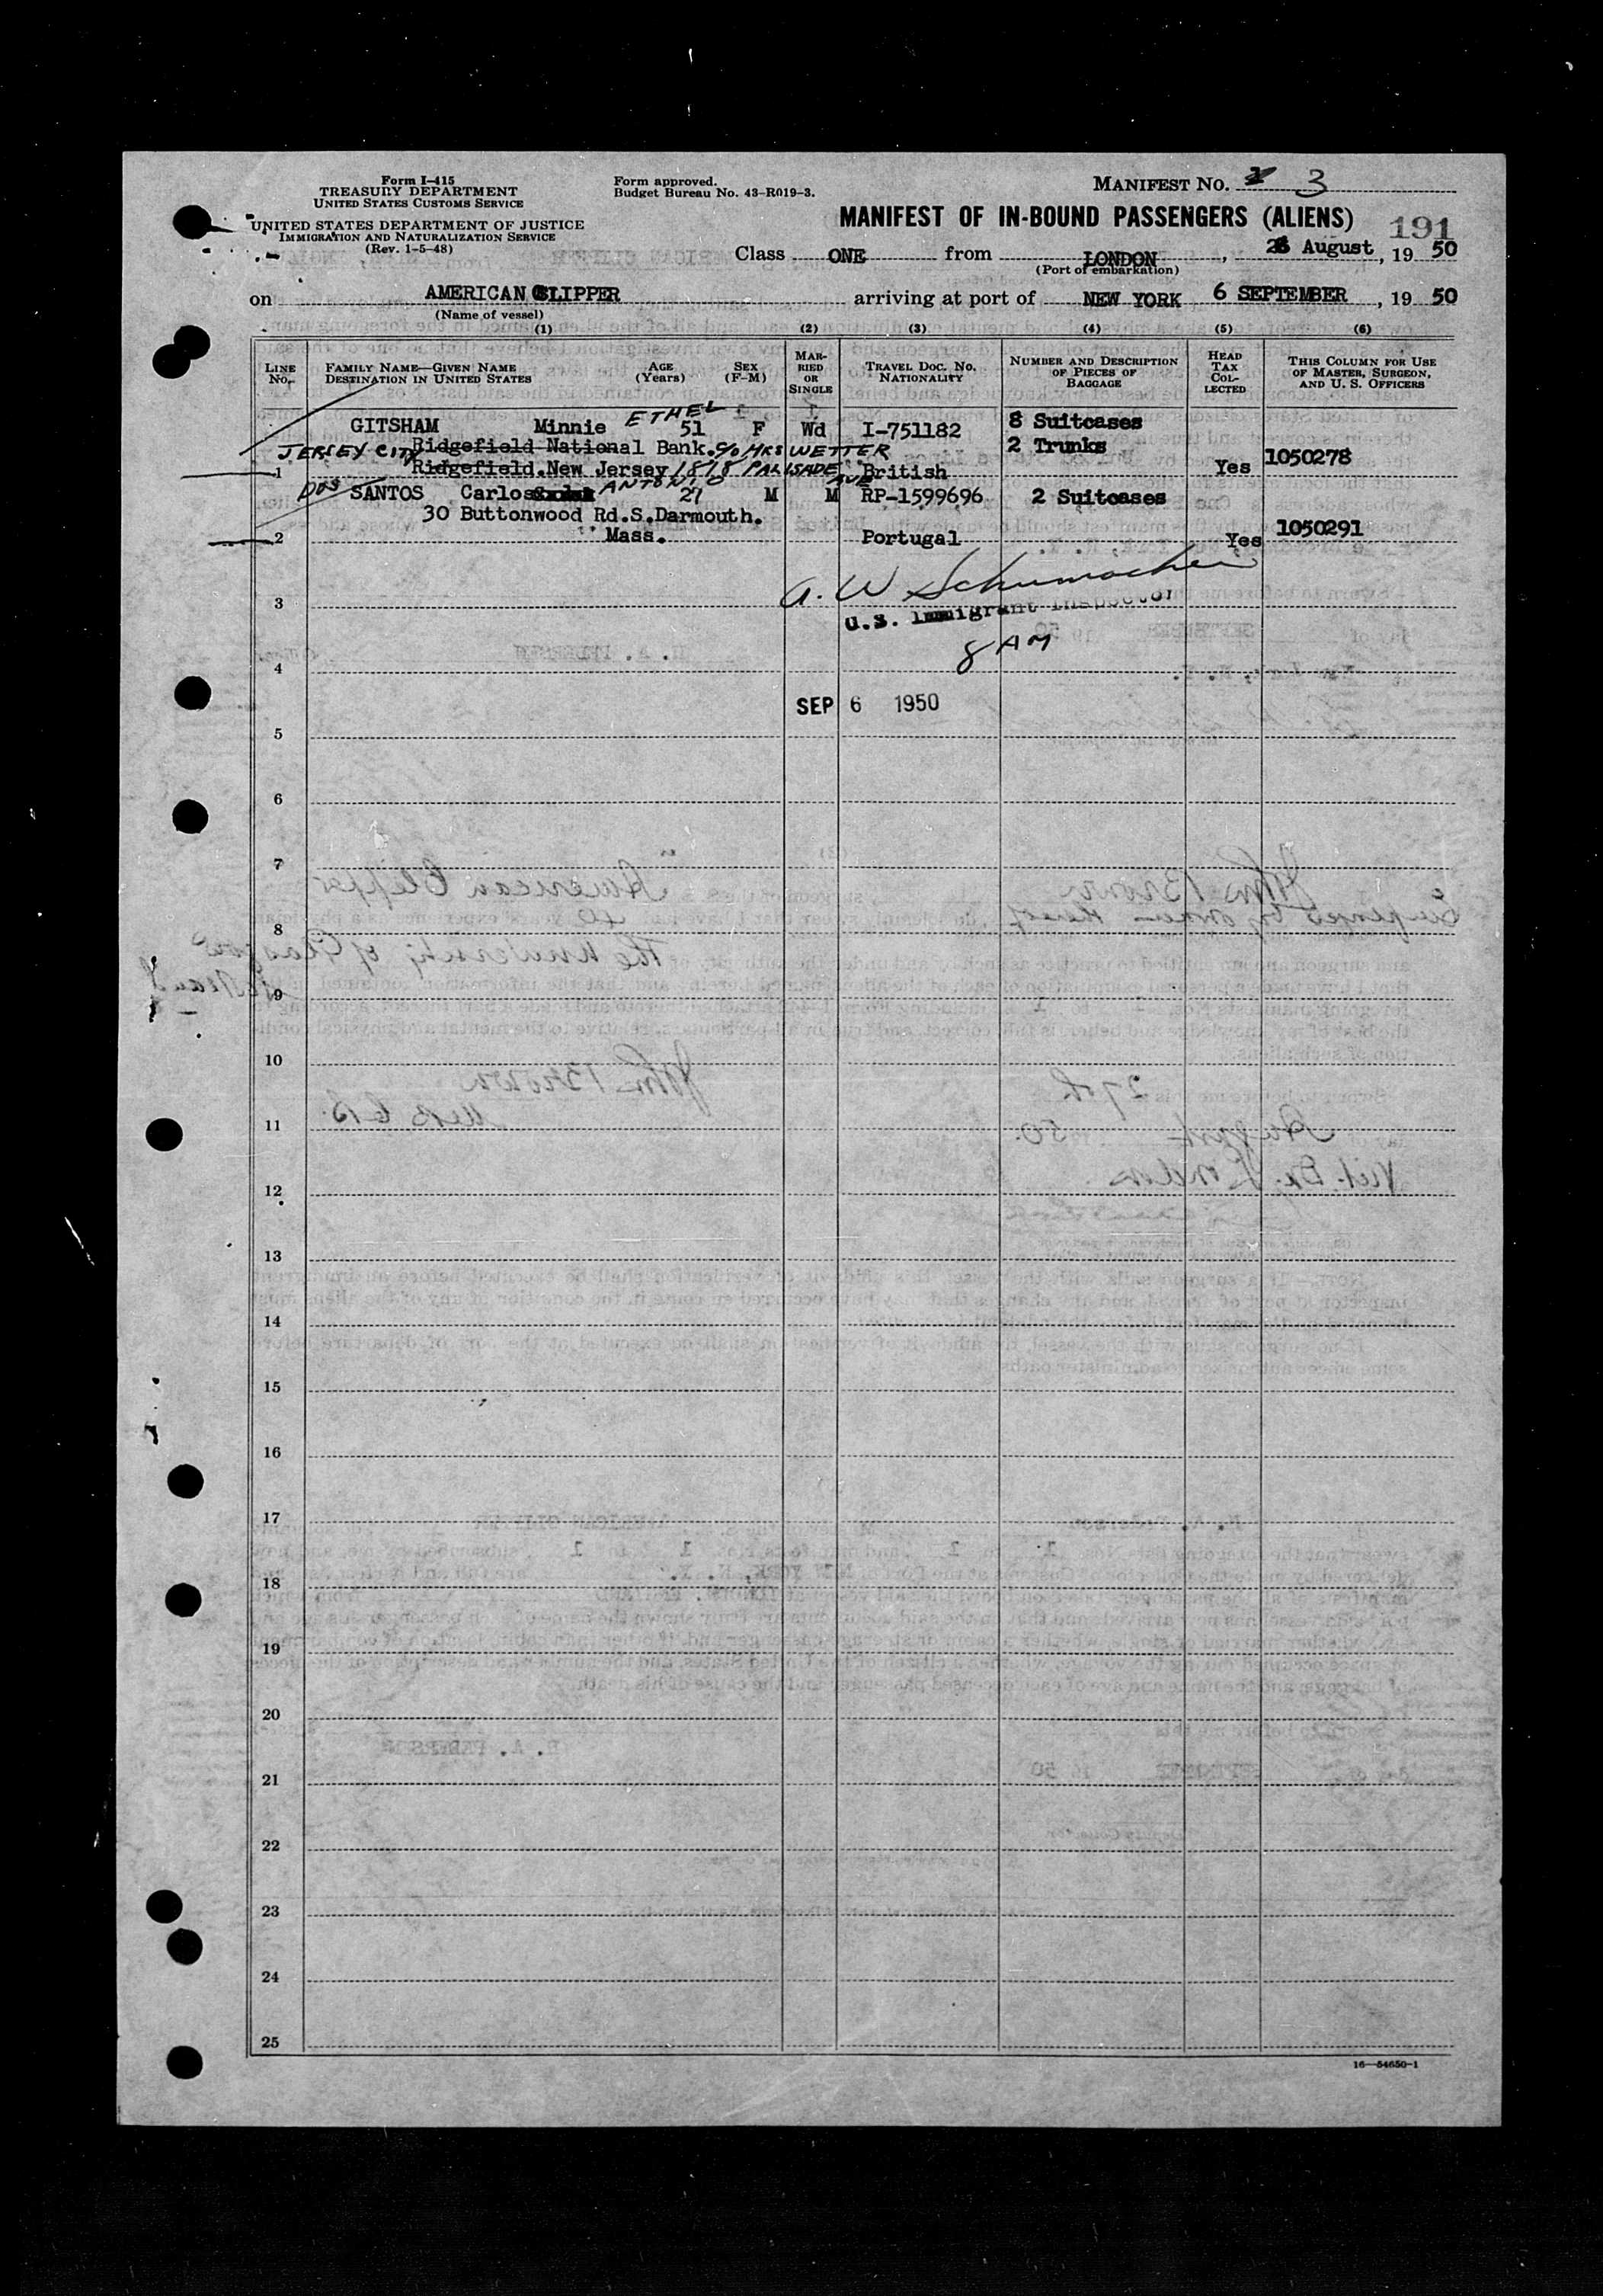 Form I-415
TREASURY DEPARTMENT
UNITED STATES CUSTOMS SERVICE
UNITED STATES DEPARTMENT OF JUSTICE
IMMIGRATION AND NATURALIZATION SERVICE
(Rev. 1-5-48)
Form approved.
Budget Bureau No. 43-R019-3.
MANIFEST NO. 3
MANIFEST OF IN-BOUND PASSENGERS (ALIENS)
191
Class ONE from LONDON, August, 19 50
(Port of embarkation)
on AMERICAN CLIPPER arriving at port of NEW YORK 6 SEPTEMBER, 19 50
(Name of vessel)
(1) (2) (3) (4) (5) (6)
LINE No. FAMILY NAME—GIVEN NAME DESTINATION IN UNITED STATES AGE (Years) SEX (F-M) MARRIED OR SINGLE TRAVEL DOC. NO. NATIONALITY NUMBER AND DESCRIPTION OF PIECES OF BAGGAGE HEAD TAX COLLECTED THIS COLUMN FOR USE OF MASTER, SURGEON, AND U. S. OFFICERS
GITSHAM Minnie ETHEL 51 F Wd I-751182 8 Suitcases
JERSEY CITY Ridgefield National Bank. C/O MRS WETTER 2 Trunks
1 Ridgefield.New Jersey 1818 PALISADE AVE British Yes 1050278
DOS SANTOS Carlos ANTONIO 27 M M RP-1599696 2 Suitcases
30 Buttonwood Rd.S.Darmouth.
2 Mass. Portugal Yes 1050291
A. W Schumacher
3 U.S. Immigrant Inspector
8 AM
4
SEP 6 1950
5
6
7
8
9
10
11
12
13
14
15
16
17
18
19
20
21
22
23
24
25
16—54650-1